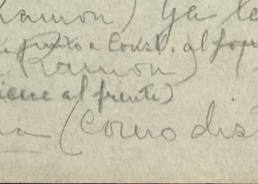 Ramon) ya le
junto a Const. al fon
Ramon)
al frente)
(Como dis